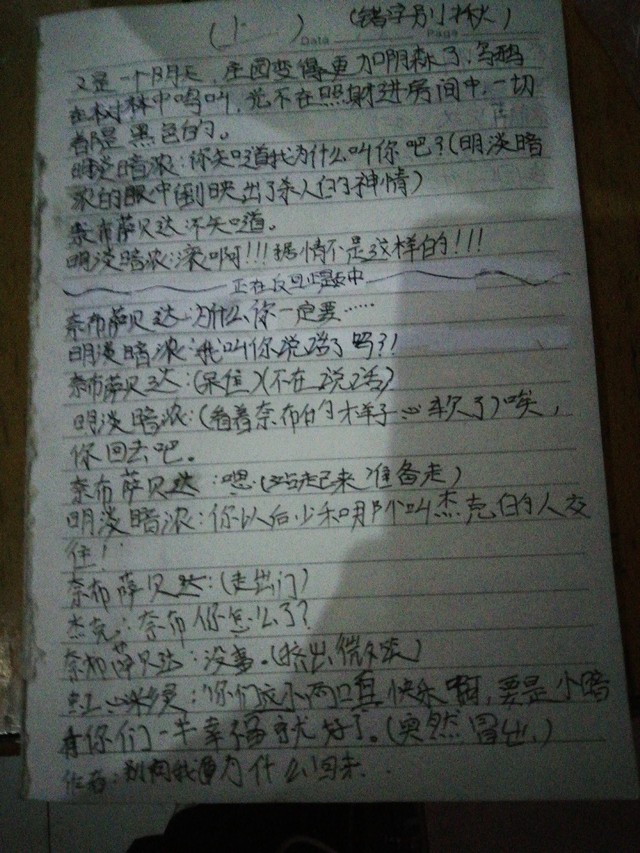 (上) (错字别揪)
Data Page
又是一个阴天,庄园变得更加阴森了,乌鸦
在树林中鸣叫,光不在照射进房间中,一切
都是黑色的。
明淡暗浓:你知道我为什么叫你吧?(明淡暗
浓的眼中倒映出了杀人的神情)
奈布萨贝达:不知道。
明淡暗浓:滚啊!!!据情不是这样的!!!
正在反思中
奈布萨贝达:为什么你一定要……
明淡暗浓:我叫你说话了吗?!
奈布萨贝达:(呆住)(不在说话)
明淡暗浓:(看着奈布的样子心软了)唉,
你回去吧。
奈布萨贝达:嗯(站起来准备走)
明淡暗浓:你以后少和那个叫杰克的人交
往!
奈布萨贝达:(走出门)
杰克:奈布你怎么了?
奈布萨贝达:没事。(挤出微笑)
:你们这小两口真快乐啊,要是小暗
有你们一半幸福就好了。(突然冒出)
作者:别问我为什么回来..